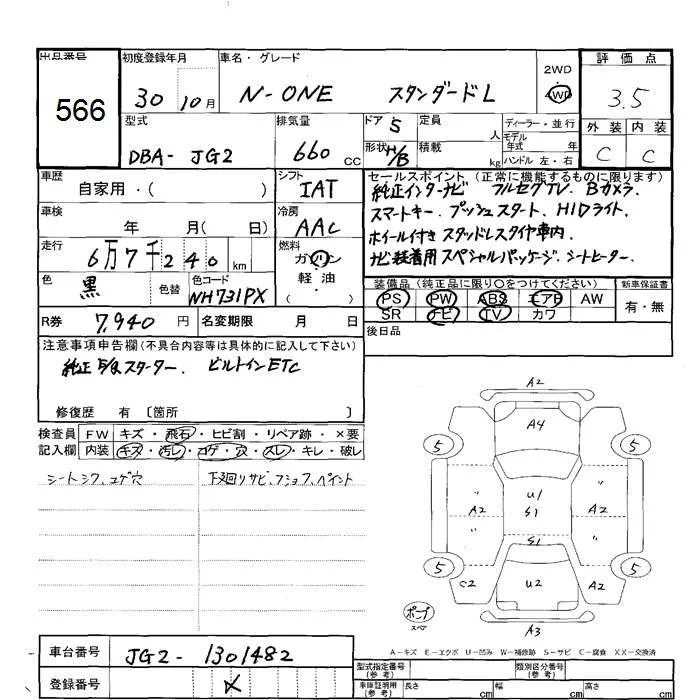 出品番号 566
初度登録年月 30 10月
車名・グレード N-ONE スタンダードL
2WD 4WD
評価点 3.5
外装 C 内装 C
型式 DBA- JG2
排気量 660 CC
ドア 5
形状 H/B
定員 人
積載 kg
ディーラー・並行
モデル年式 年
ハンドル 左・右
車歴 自家用・( )
シフト IAT
車検 年 月( 日)
冷房 AAC
走行 6万7千240 km
燃料 ガソリン ( 軽・油 )
色 黒 色替 色コード NH731PX
R券 7,940 円 名変期限 月 日
セールスポイント (正常に機能するものに限ります)
純正インターナビ フルセグTV. Bカメラ.
スマートキー. プッシュスタート. HIDライト.
ホイール付きスタッドレスタイヤ車内.
ナビ装着用スペシャルパッケージ. シートヒーター.
装備品 (純正品に限り○をつけてください) 新車保証書
PS PW ABS エアB AW 有・無
SR ナビ TV カワ
後日品
注意事項申告欄(不具合内容等は具体的に記入して下さい)
純正E/gスターター. ビルトインETC
修復歴 有 〔箇所 〕
検査員 FW キズ・飛石・ヒビ割・リペア跡・×要
記入欄 内装 キズ・汚レ・コゲ・穴・スレ・キレ・破レ
シートシワ、コゲ穴 下廻りサビ、
A2
A4
5 5
" U1 "
A2 S1 A2
S1
5 5
C2 U2 A2
A3
A-キズ E-エクボ U-凹み W-補修跡 S-サビ C-腐食 XX-交換済
車台番号 JG2- 1301482
登録番号
型式指定番号 (参考) 類別区分番号 (参考)
車庫証明用 (参考) 長さ cm 幅 cm 高さ cm